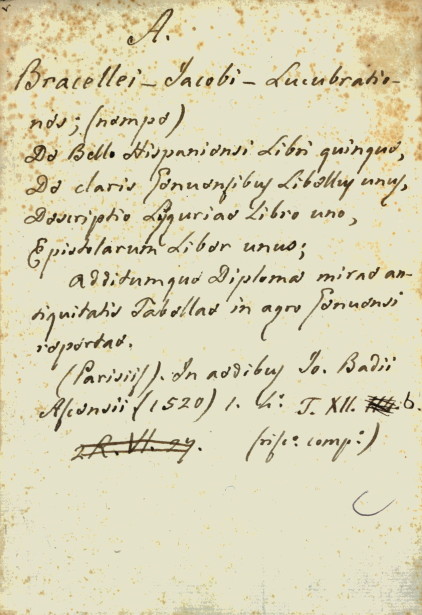 A.
Bracellei - Jacobi - Lucubratio-
nes; (nempe)
De Bello Hispaniensi Libri quinque,
De claris Genuensibus Libellus unus,
Descriptio Liguriae Libro uno,
Epistolarum Liber unus;
Additumque Diploma mirae an-
tiquitatis Tabellae in agro Genuensi
repertae.
(Parisiis). In aedibus Jo. Badii
Ascensii (1520) 1. T. XII. 6.
2R. VI. 27. (risc.º comp.º)